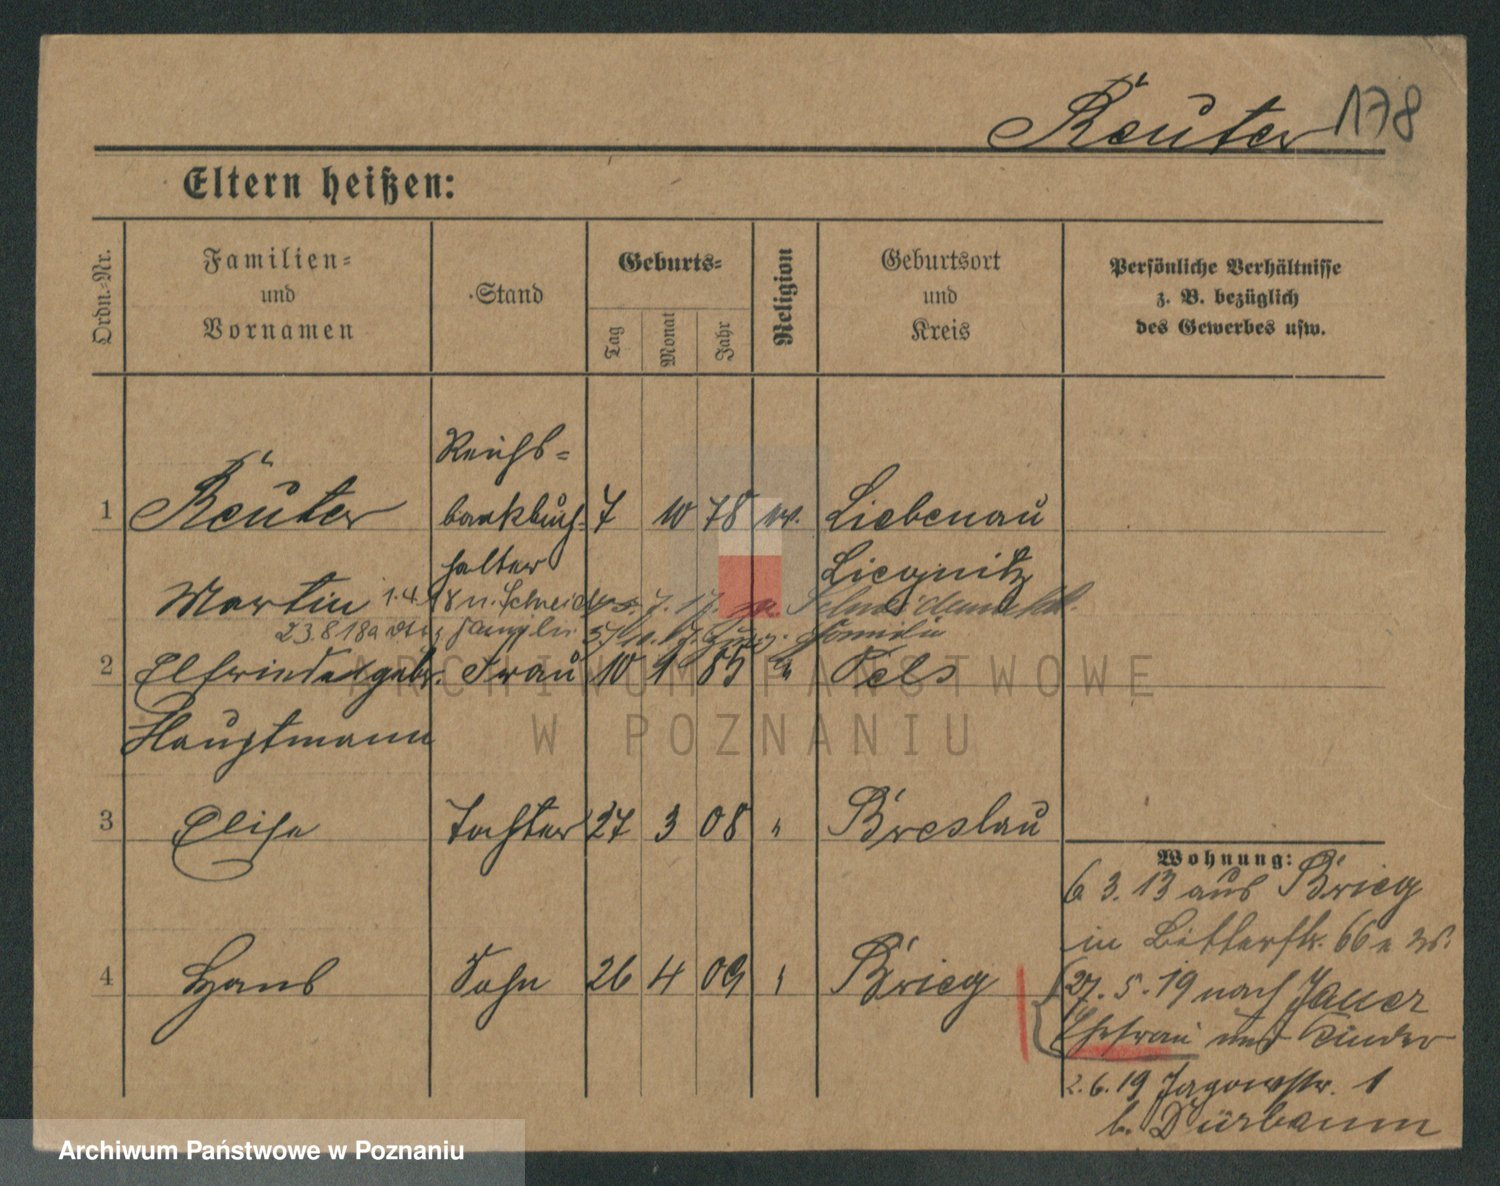 Reuter 178
Eltern heißen:
Ordn.-Nr.
Familien-
und
Vornamen
Stand
Geburts-
Tag
Monat
Jahr
Religion
Geburtsort
und
Kreis
Persönliche Verhältnisse
z. B. bezüglich
des Gewerbes usw.
Reichs-
1 Reuter bankbuch- 7 10 78 ev. Liebenau
halter Liegnitz
Martin 1.4.18 n. Schneid
23.8.18 Familie
2 Elfriede geb. Frau 10 9 85 " Oels
Hauptmann
3 Elise Tochter 27 3 08 " Breslau
Wohnung:
6 3. 13 aus Brieg
in Bitterstr. 66
4 Hans Sohn 26 4 09 " Brieg
27. 5. 19 nach Jauer
Ehefrau und Kinder
2. 6. 19 Jagowstr. 1
b. Dürbaum
ARCHIWUM PAŃSTWOWE
W POZNANIU
Archiwum Państwowe w Poznaniu